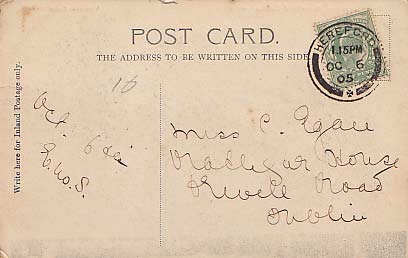 POST CARD.
THE ADDRESS TO BE WRITTEN ON THIS SIDE
HEREFORD
1.15PM
OC 6
05
Write here for Inland Postage only.
16
Oct. 6
Miss C. Egan
House
Road
Dublin